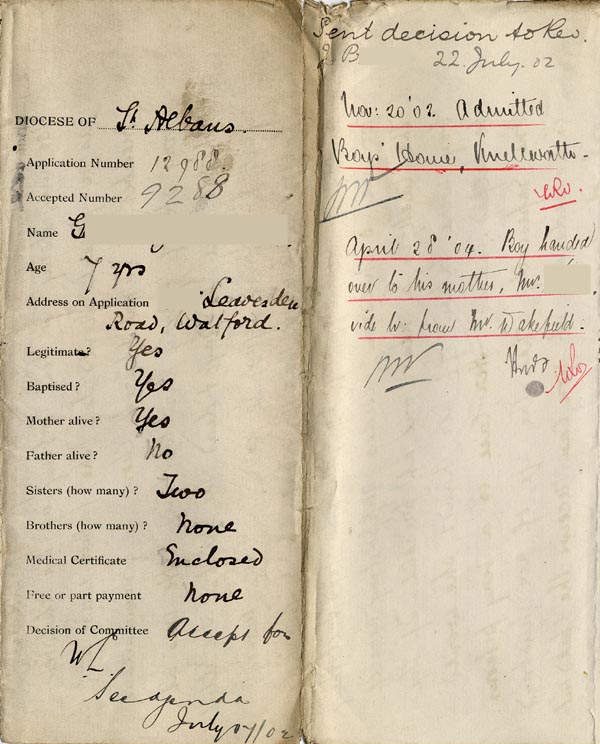 DIOCESE OF St Albans.
Application Number 12988.
Accepted Number 9288
Name G
Age 7 yrs
Address on Application Leavesden
Road, Watford.
Legitimate? Yes
Baptised? Yes
Mother alive? Yes
Father alive? No
Sisters (how many)? Two
Brothers (how many)? None
Medical Certificate Enclosed
Free or part payment None
Decision of Committee Accept for
See agenda
July 17/02
Sent decision to Rev.
B
22. July. 02
Nov: 20 '02. Admitted
Boys' Home, Knebworth.
April 28 '04. Boy handed
over to his mother, Mrs.
vide lr: from Mr. Wakefield.